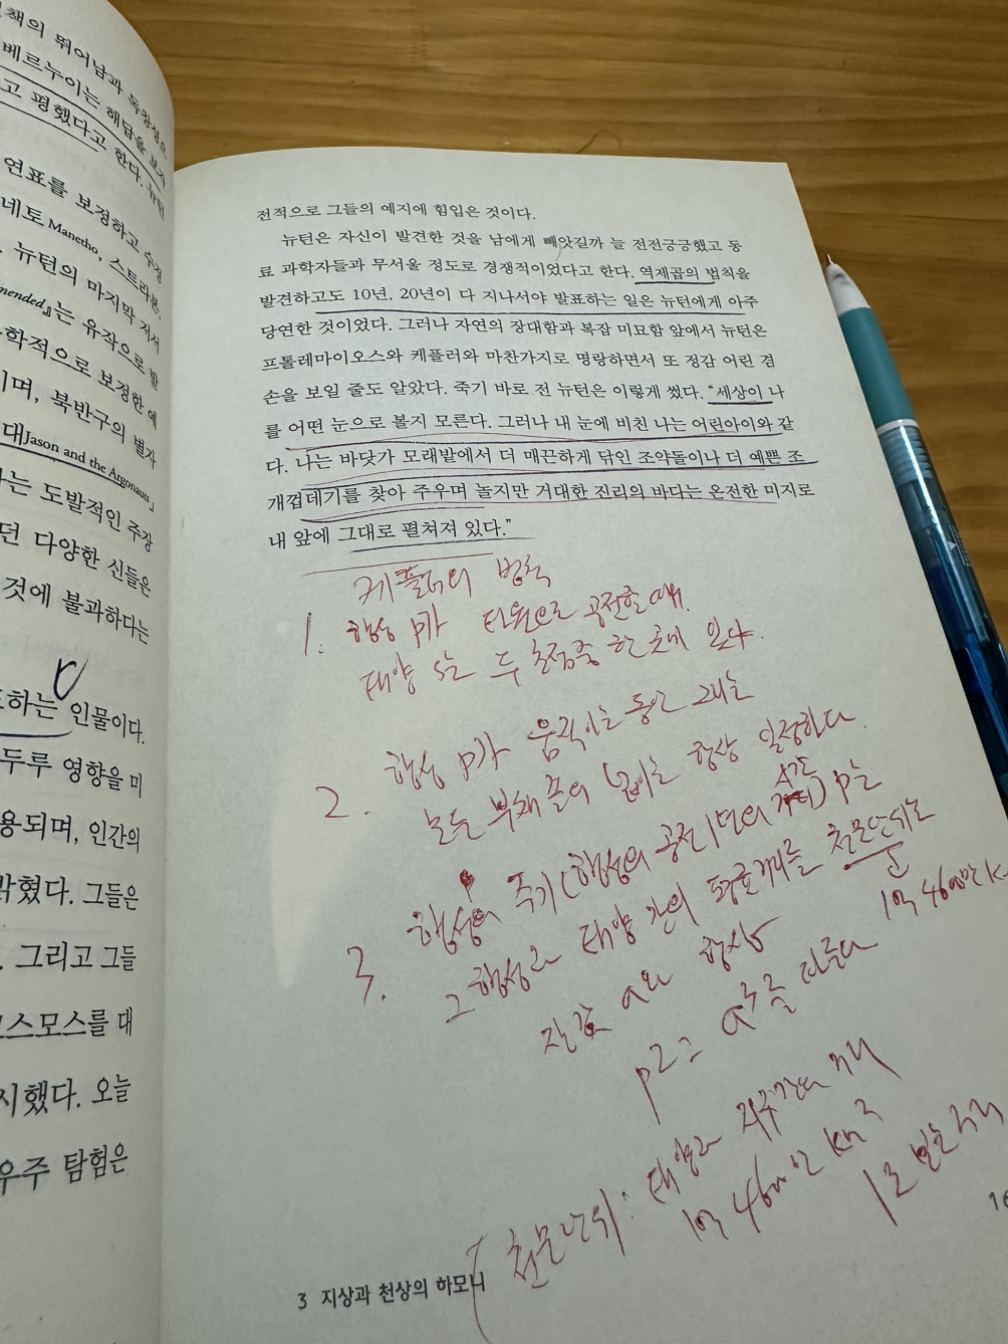 책의 뛰어남과 독창성은
베르누이는 해답을 보자
고 평했다고 한다. 뉴턴
연표를 보정하고 수정
네토 Manetho, 스트라본,
뉴턴의 마지막 저서
mended』는 유작으로 발
학적으로 보정한 예
이며, 북반구의 별자
대Jason and the Argonauts」
라는 도발적인 주장
던 다양한 신들은
것에 불과하다는
하는 인물이다.
두루 영향을 미
용되며, 인간의
밝혔다. 그들은
. 그리고 그들
코스모스를 대
시했다. 오늘
우주 탐험은
전적으로 그들의 예지에 힘입은 것이다.
뉴턴은 자신이 발견한 것을 남에게 빼앗길까 늘 전전긍긍했고 동
료 과학자들과 무서울 정도로 경쟁적이었다고 한다. 역제곱의 법칙을
발견하고도 10년, 20년이 다 지나서야 발표하는 일은 뉴턴에게 아주
당연한 것이었다. 그러나 자연의 장대함과 복잡 미묘함 앞에서 뉴턴은
프톨레마이오스와 케플러와 마찬가지로 명랑하면서 또 정감 어린 겸
손을 보일 줄도 알았다. 죽기 바로 전 뉴턴은 이렇게 썼다. “세상이 나
를 어떤 눈으로 볼지 모른다. 그러나 내 눈에 비친 나는 어린아이와 같
다. 나는 바닷가 모래밭에서 더 매끈하게 닦인 조약돌이나 더 예쁜 조
개껍데기를 찾아 주우며 놀지만 거대한 진리의 바다는 온전한 미지로
내 앞에 그대로 펼쳐져 있다.”
케플러의 법칙
1. 행성 P가 타원으로 공전할 때.
태양 S는 두 초점중 한 곳에 있다.
2. 행성 P가 움직이는 동안 그리는
모든 부채꼴의 넓이는 항상 일정하다.
시간
3. 행성의 주기(행성의 공전 1년의 ) P는
그 행성과 태양 간의 평균거리를 천문단위로
1억 4600만 K
잔 값 a와 항상
P2= a3를 따른다
(천문단위: 태양과 지구간의 거리
1억 4600만 km 를
1로 보는 거리
3 지상과 천상의 하모니